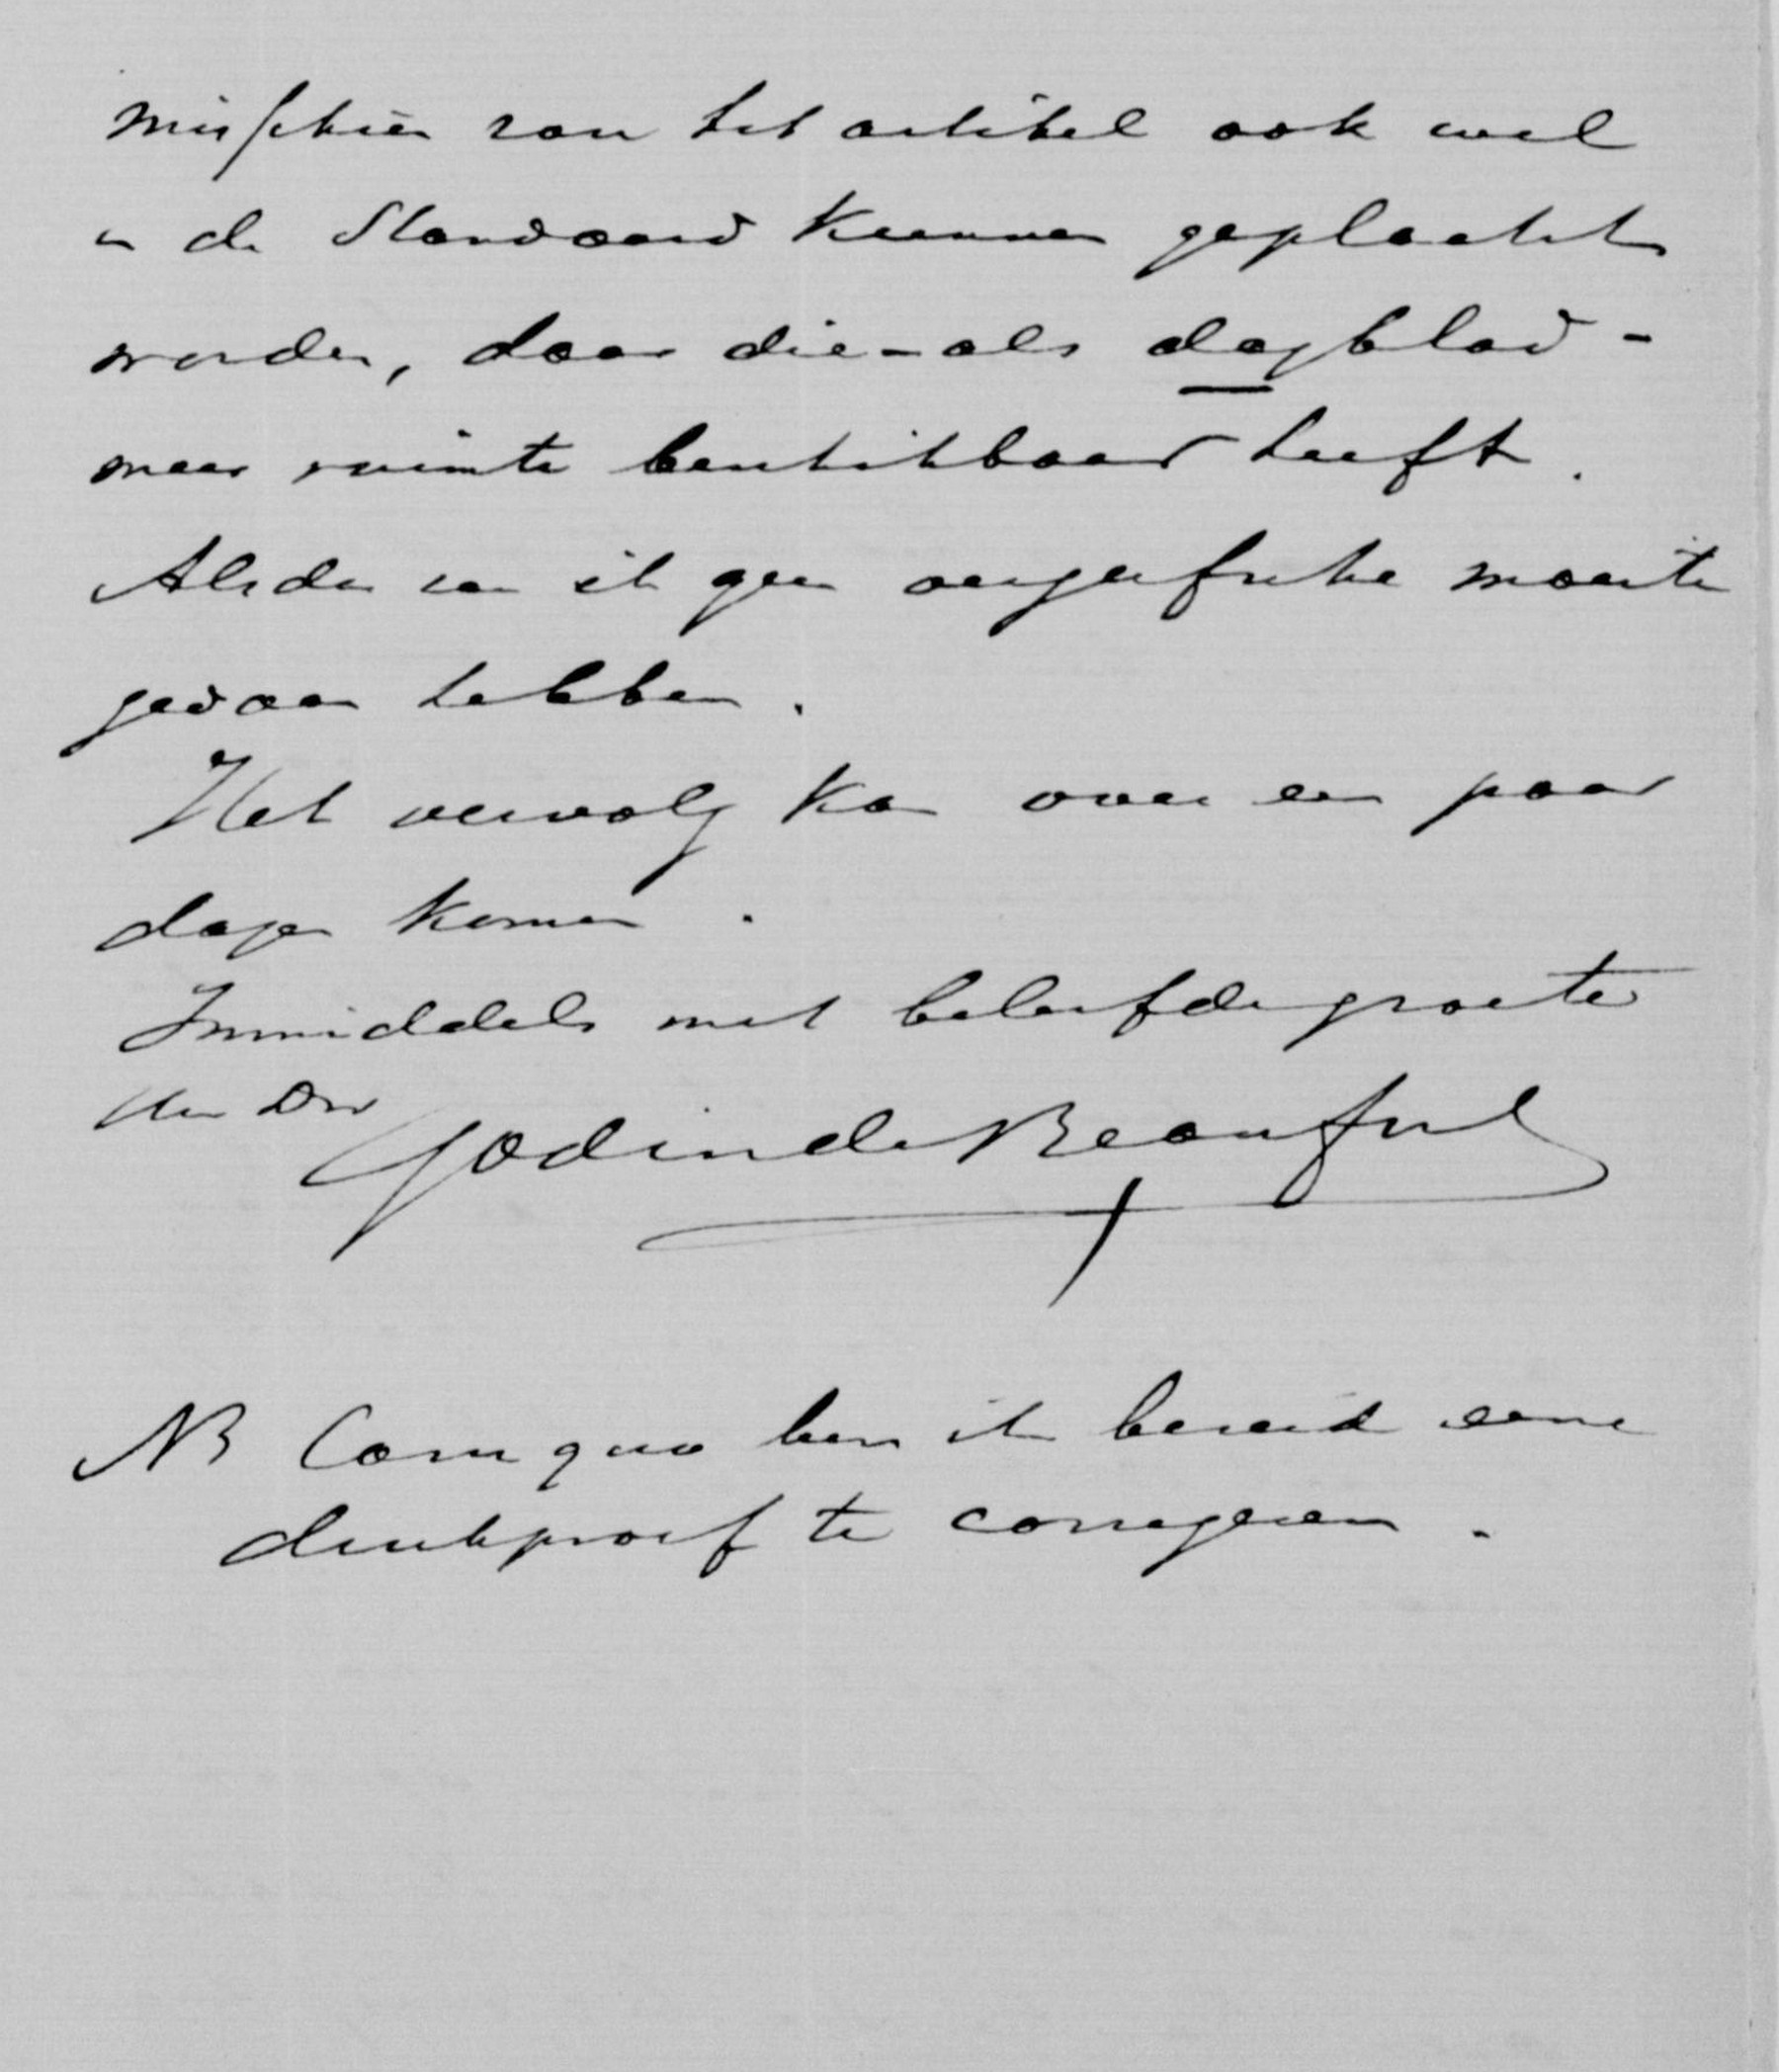 Misschien zou het artikel ook wel
in de Standaard kunnen geplaatst
worden, daar die - als dagblad -
meer ruimte beschikbaar heeft.
Alsdan zou ik geen vergeefsche moeite
gedaan hebben.
Het vervolg kan over een paar
dagen komen.
Inmiddels met beleefde groeten
Uw Dw
Godin de Beaufort
NB Casu quo ben ik bereid eene
drukproef te corrigeeren.